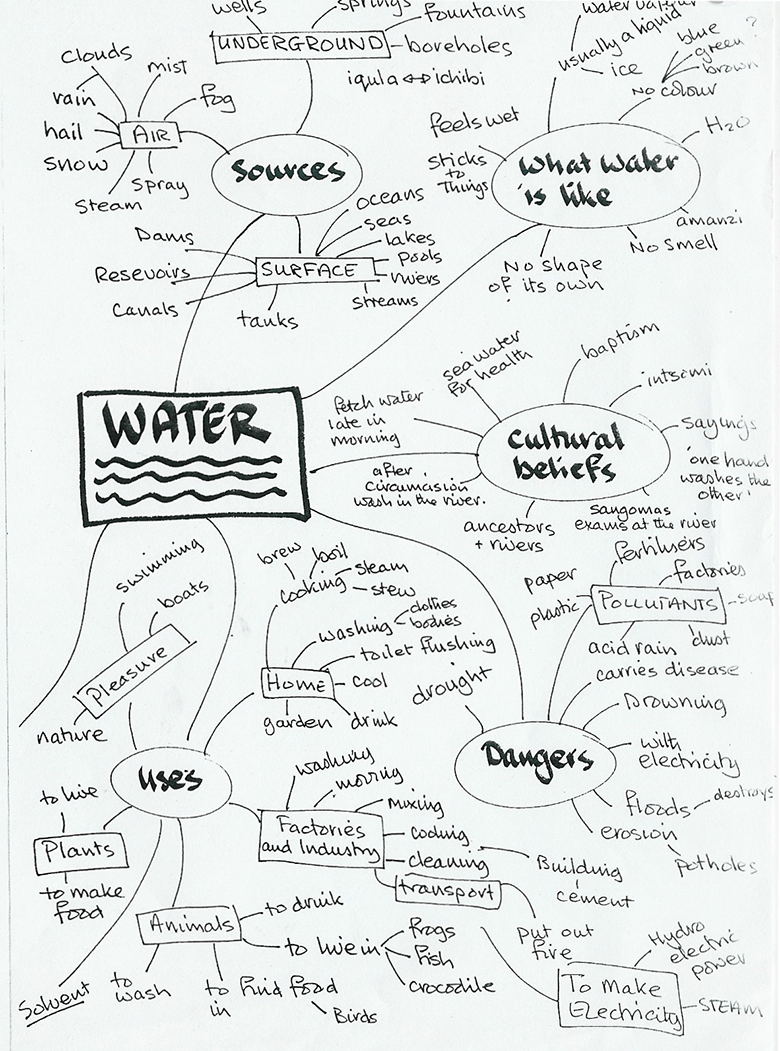 wells
springs
fountains
UNDERGROUND
boreholes
iqula ↔ ichibi
clouds
mist
rain
fog
hail
AIR
snow
spray
steam
Sources
water vapour
usually a liquid
ice
blue
green?
brown
No colour
feels wet
H2O
sticks
to
Things
What water
is like
amanzi
No smell
No shape
of its own
oceans
seas
lakes
pools
rivers
streams
SURFACE
Dams
Resevoirs
Canals
tanks
WATER
sea water
for health
baptism
intsomi
fetch water
late in
morning
Cultural
beliefs
sayings
'one hand
washes the
other'
after
circumcision
wash in the river.
ancestors
+ rivers
Sangomas
exams at the river
swimming
boats
Pleasure
nature
brew
boil
cooking
steam
stew
washing
clothes
bodies
toilet flushing
HOME
cool
garden
drink
drought
fertilisers
paper
factories
plastic
POLLUTANTS
soap
acid rain
dust
carries disease
Drowning
Dangers
with
electricity
floods
destroys
erosion
potholes
uses
to live
Plants
to make
food
washing
mixing
Factories
and Industry
cooling
cleaning
transport
Building
cement
put out
fire
Animals
to drink
to live in
frogs
fish
crocodile
to
wash
to find food
in
Birds
Solvent
To Make
Electricity
Hydro
electric
power
STEAM